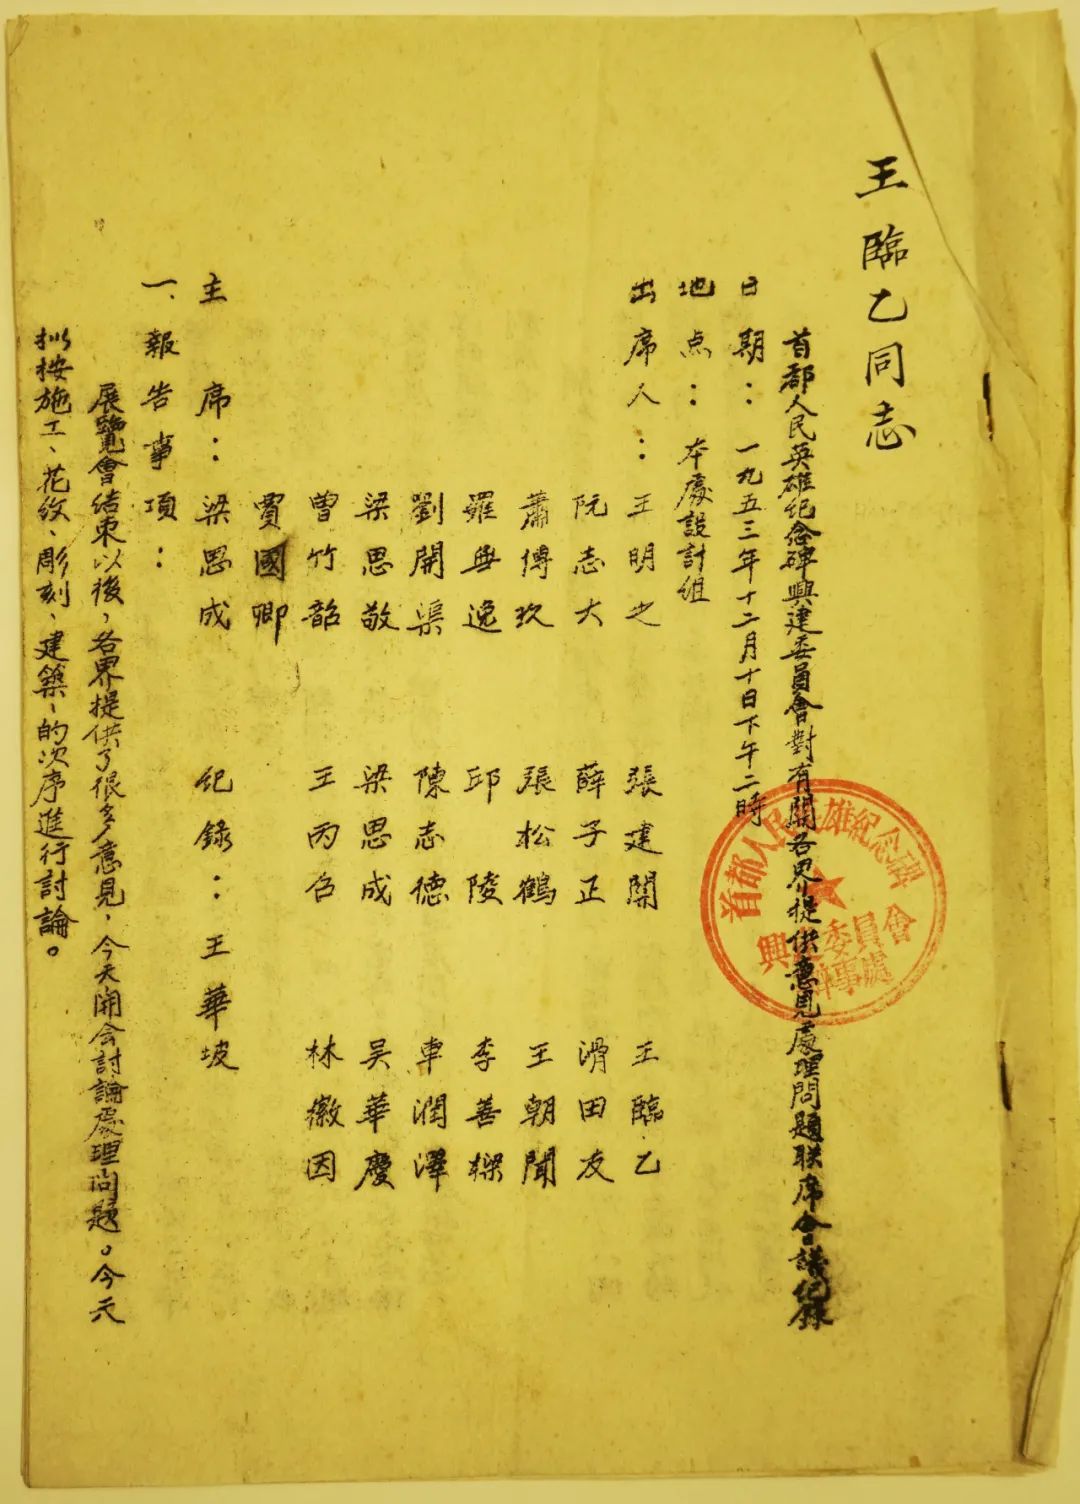 王臨乙同志
首都人民英雄纪念碑興建委員會對有関各界提供意見處理問題联席会議纪錄
日期：一九五三年十二月十日下午二時
地点：本處設計組
出席人：王明之 張建関 王臨乙
阮志大 薛子正 滑田友
蕭傅玖 張松鶴 王朝聞
羅無逸 邱陵 李善樑
劉開渠 陳志德 車潤澤
梁思敬 梁思成 吴華慶
曾竹韶 王丙召 林徽因
賈國卿
主席：梁思成 纪錄：王華坡
一、報告事項：
展覽會结束以後，各界提供了很多意見，今天開会討論處理问题。今天
拟按施工、花纹、彫刻、建築、的次序進行討論。
首都人民英雄紀念碑
興建委員會
辦事處